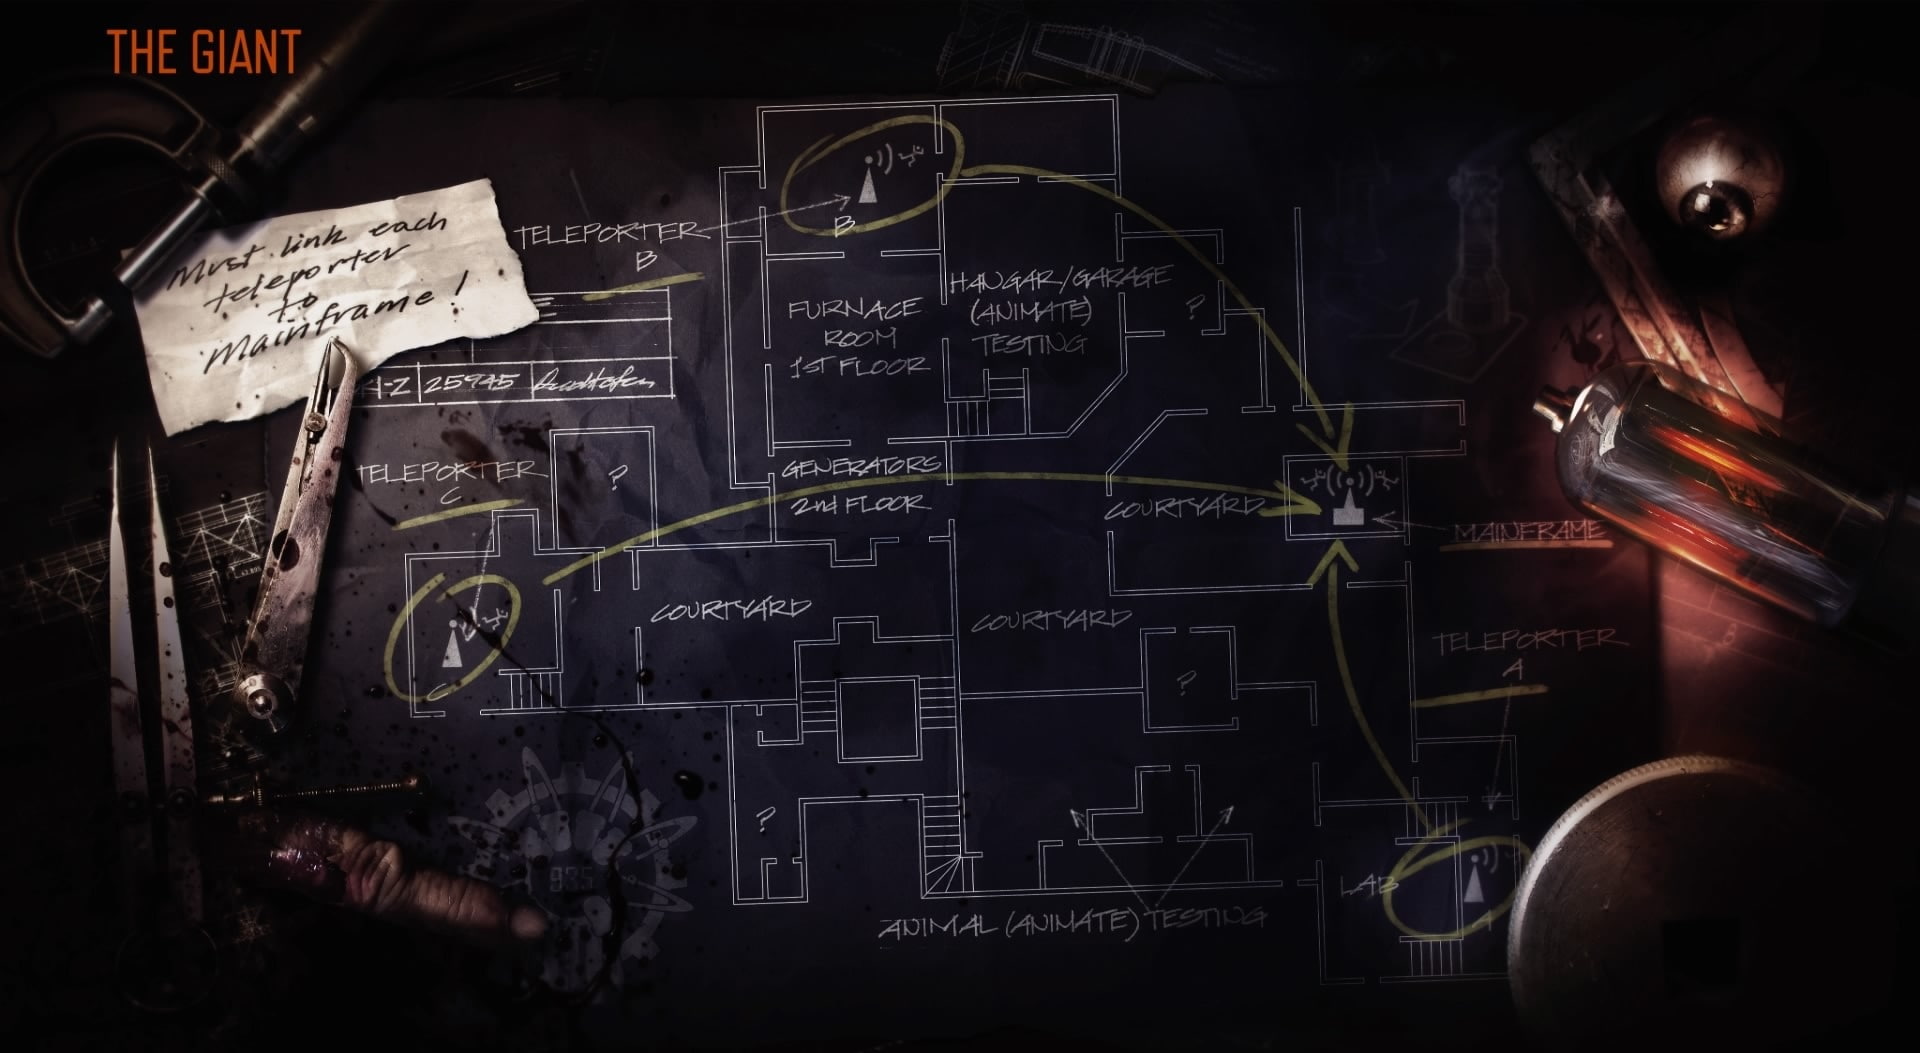 THE GIANT
Must link each
teleporter
to
Mainframe!
TELEPORTER
B
B
FURNACE
ROOM
1ST FLOOR
HANGAR/GARAGE
(ANIMATE)
TESTING
?
25945
TELEPORTER
C
?
GENERATORS
2nd FLOOR
COURTYARD
MAINFRAME
COURTYARD
COURTYARD
C
TELEPORTER
A
?
?
LAB
A
ANIMAL (ANIMATE) TESTING
935